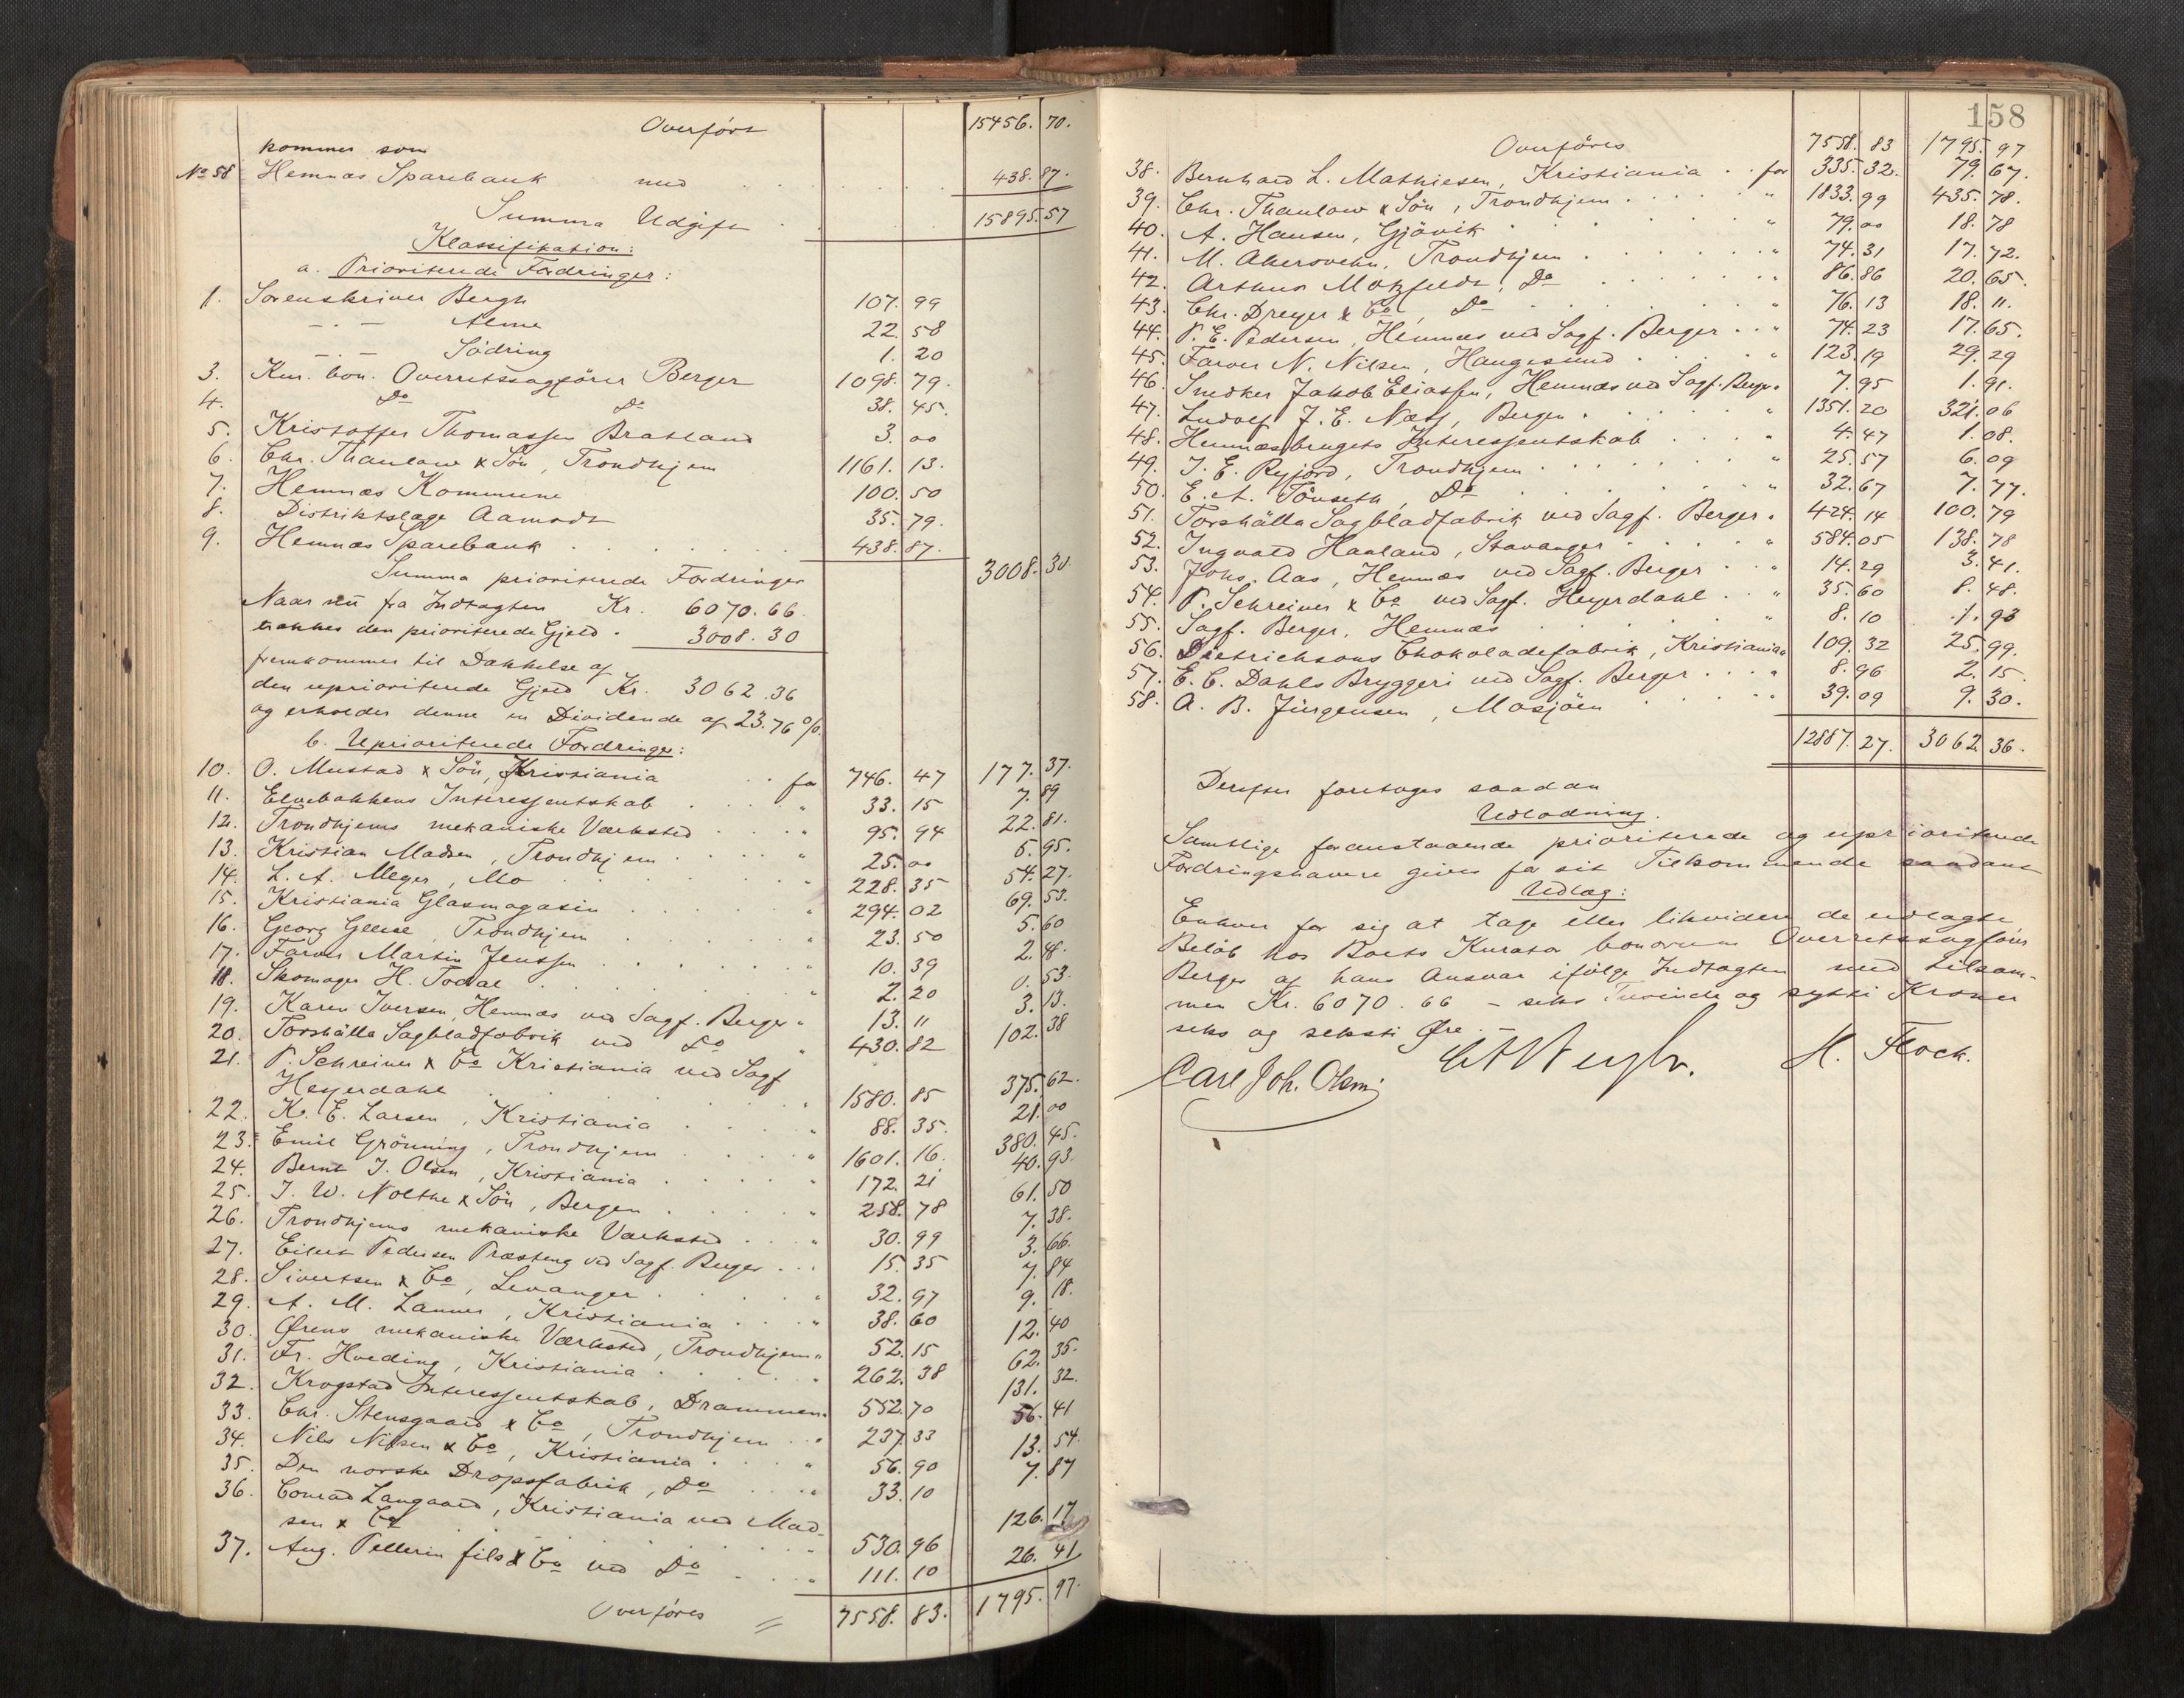 Overført 15456. 70.
kommer som
No 58 Hemnæs Sparebank med . . . 438. 87.
Summa Udgift . . . 15895. 57
Klassifikation:
a. Prioriterede Fordringer:
1. Sorenskriver Bergh 107. 99
— . — Alme 22. 58
— . — Södring 1. 20
3. Kur. bon. Overretssagförer Berger 1098. 79.
4. Do Do 38. 45.
5. Kristoffer Thomassen Bratland 3. 00
6. Chr. Thaulow & Sön, Trondhjem 1161. 13.
7. Hemnæs Kommune 100. 50
8. Distriktslæge Aamodt 35. 79.
9. Hemnæs Sparebank . . . . 438. 87.
Summa prioriterede Fordringer 3008. 30.
Naar nu fra Indtægten Kr. 6070. 66.
trækkes den prioriterede Gjeld . 3008. 30
fremkommer til Dækkelse af
den uprioriterede Gjeld Kr. 3062. 36
og erholder denne en Dividende af 23.76 %.
b. Uprioriterede Fordringer:
10. O. Mustad & Sön, Kristiania . . for 746. 47 177. 37.
11. Elvebakkens Interessentskab . . . " 33. 15 7. 89
12. Trondhjems mekaniske Værksted . . . " 95. 94 22. 81.
13. Kristian Madsen, Trondhjem . . . " 25. 00 5. 95.
14. L. A. Meyer, Mo . . . " 228. 35 54. 27.
15. Kristiania Glasmagasin . . . " 294. 02 69. 53.
16. Georg Geelse, Trondhjem . . . " 23. 50 5. 60
17. Farver Martin Jenssen . . . " 10. 39 2. 48.
18. Skomager H. Todal . . . " 2. 20 0. 53.
19. Karen Iversen, Hemnæs ved Sagf. Berger " 13. 11 3. 13.
20. Torshälla Sagbladfabrik ved Do " 430. 82 102. 38
21. P. Schreiner & Co Kristiania ved Sagf
Heyerdahl . . . " 1580. 85 375. 62.
22. K. E. Larsen, Kristiania . . . " 88. 35. 21. 00
23. Emil Grönning, Trondhjem . . . " 1601. 16. 380. 45.
24. Bernt J. Olsen, Kristiania . . . " 172. 21 40. 93.
25. J. W. Nolthe & Sön, Bergen . . . " 258. 78 61. 50
26. Trondhjems mekaniske Værksted . . . " 30. 99 7. 38.
27. Eilert Pedersen Præsteng ved Sagf. Berger . . . 15. 35 3. 66.
28. Sivertsen & Co, Levanger . . . " 32. 97 7. 84
29. A. M. Lanner, Kristiania . . . " 38. 60 9. 18.
30. Ørens mekaniske Værksted, Trondhjem " 52. 15 12. 40
31. Fr. Hoeding, Kristiania . . . " 262. 38 62. 35.
32. Krogstad Interessentskab, Drammen " 552. 70 131. 32.
33. Chr. Stensgaard & Co, Trondhjem . . " 237. 33 56. 41
34. Nils Nilsen & Co, Kristiania . . . " 56. 90 13. 54.
35. Den norske Dropsfabrik, Do . . . " 33. 10 7. 87
36. Conrad Langaard, Kristiania ved Mad-
sen & Co . . . " 530. 96 126. 17
37. Aug. Pellerin fils & Co ved Do . . . " 111. 10 26. 41
Overføres = 7558. 83. 1795. 97.
158
Overføres 7558. 83 1795. 97
38. Bernhard L. Mathiesen, Kristiania . . for 335. 32. 79. 67.
39. Chr. Thaulow & Sön, Trondhjem . . . " 1833. 99 435. 78.
40. A. Hansen, Gjövik . . . " 79. 00 18. 78
41. M. Akersvehn, Trondhjem . . . " 74. 31 17. 72.
42. Arthur Motzfeldt, Do . . . " 86. 86 20. 65.
43. Chr. Dreyer & Co, Do . . . " 76. 13 18. 11.
44. P. E. Pedersen, Hemnæs ved Sagf. Berger . . " 74. 23 17. 65.
45. Farver N. Nilsen, Haugesund . . . " 123. 19 29. 29
46. Snedker Jakob Eliassen, Hemnæs ved Sagf. Berger " 7. 95 1. 91.
47. Ludolf J. E. Næss, Bergen . . . " 1351. 20 321. 06
48. Hemnæsbrugets Interessentskab . . . " 4. 47 1. 08.
49. J. E. Ryjord, Trondhjem . . . " 25. 57 6. 09
50. E. A. Tönseth, Do . . . " 32. 67 7. 77.
51. Torshälla Sagbladfabrik ved Sagf. Berger " 424. 14 100. 79
52. Ingvald Haaland, Stavanger . . . " 584. 05 138. 78
53. Johs. Aas, Hemnæs ved Sagf. Berger . . " 14. 29 3. 41.
54. P. Schreiner & Co ved Sagf. Heyerdahl . . " 35. 60 8. 48.
55. Sagf. Berger, Hemnæs . . . " 8. 10 1. 93
56. Dietrichsons Chokoladefabrik, Kristiania " 109. 32 25. 99.
57. E. C. Dahls Bryggeri ved Sagf. Berger . . . " 8. 96 2. 15
58. A. B. Jürgensen, Mosjöen . . . 39. 09 9. 30.
12887. 27. 3062. 36.
Derefter foretoges saadan
Udlodning.
Samtlige foranstaaende prioriterede og uprioriterede
Fordringshavere gives for sit Tilkommende saadant
Udlæg:
Enhver for sig at tage eller likvidere de udlagte
Beløb hos Boets Kurator bonorum Overretssagfører
Berger af hans Ansvar ifølge Indtægten med tilsam-
men Kr. 6070. 66 — seks Tusinde og sytti Kroner
seks og seksti Øre. —
Carl Joh. Olsen H. Flock.